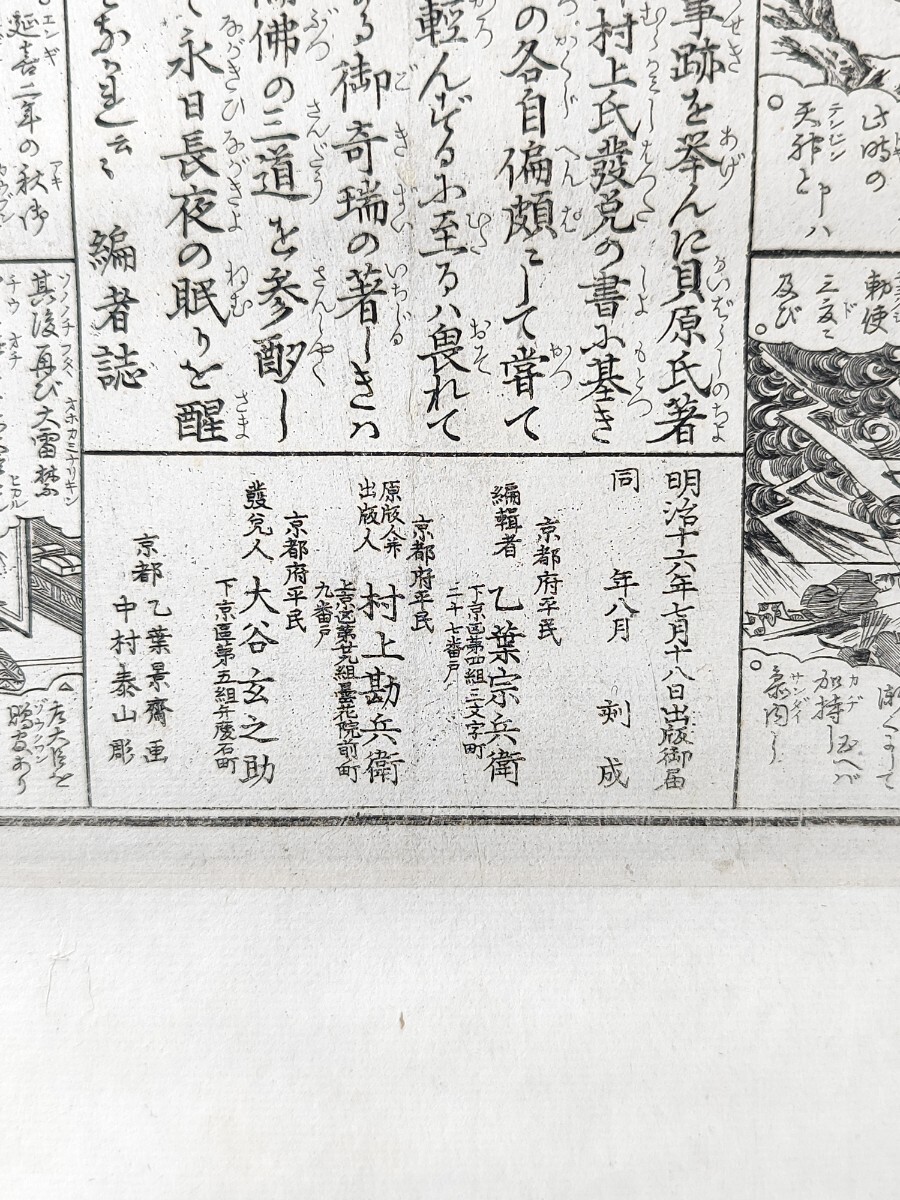 事跡を挙んに貝原氏著
村上氏發兌の書に基き
の各自偏頗にして嘗て
軽んずるに至るハ畏れて
る御奇瑞の著しきハ
佛の三道を参酌し
て永日長夜の眠りを醒
編者誌
明治十六年七月十八日出版御届
同 年八月 刻成
京都府平民
編輯者 乙葉宗兵衛
下京区第四組三文字町
二十七番戸
京都府平民
原版人并
出版人 村上勘兵衛
上京区第廿九組曇花院前町
九番戸
京都府平民
發兌人 大谷玄之助
下京區第五組弁慶石町
京都 乙葉景齋 画
中村泰山 彫
此時の
天神と
勅使
三度
及び
加持し
参内し
延喜二年の秋
其後再び大雷